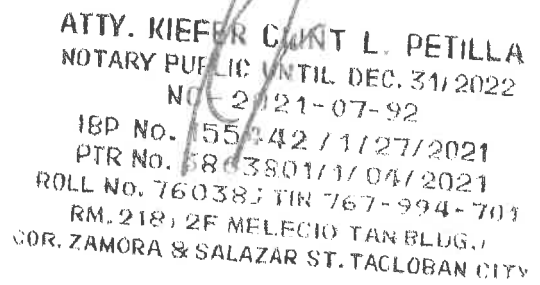 ATTY. KIEFER CLINT L. PETILLA
NOTARY PUBLIC UNTIL DEC. 31, 2022
NO - 2021-07-92
IBP No. / 1/27/2021
PTR No. /1/04/2021
ROLL No. 76038; TIN 767-994-701
RM. 218, 2F MELECIO TAN BLDG.,
COR. ZAMORA & SALAZAR ST. TACLOBAN CITY